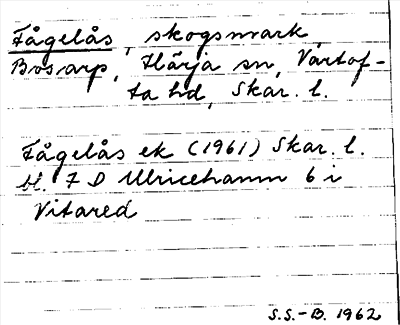 Fågelås, skogsmark,
Bosarp, Härja sn, Vartof-
ta hd, Skar. l.
Fågelås ek (1961) Skar. l.
bl. 7 D Ulricehamn 6 i
Vitared
S.S.-B. 1962